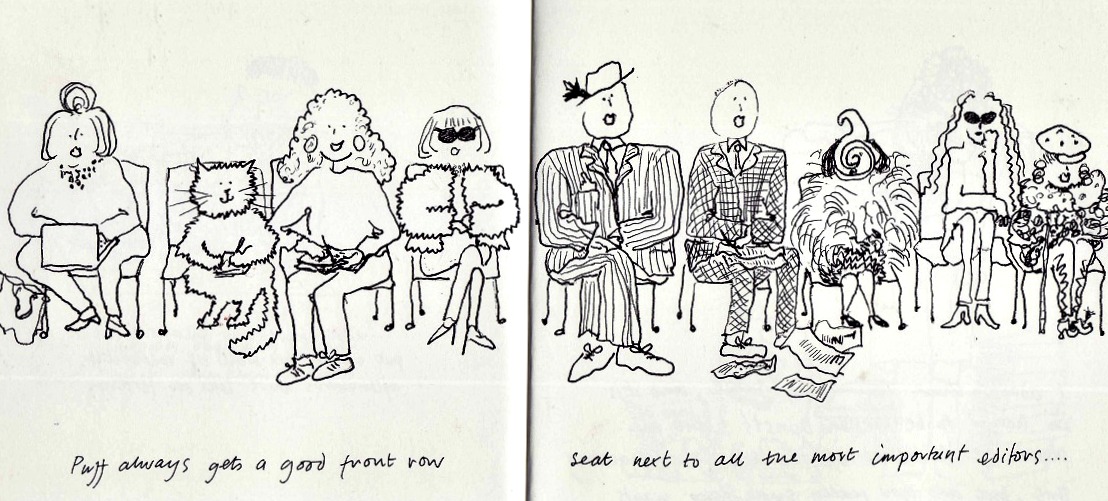 Puff always gets a good front row
seat next to all the most important editors....